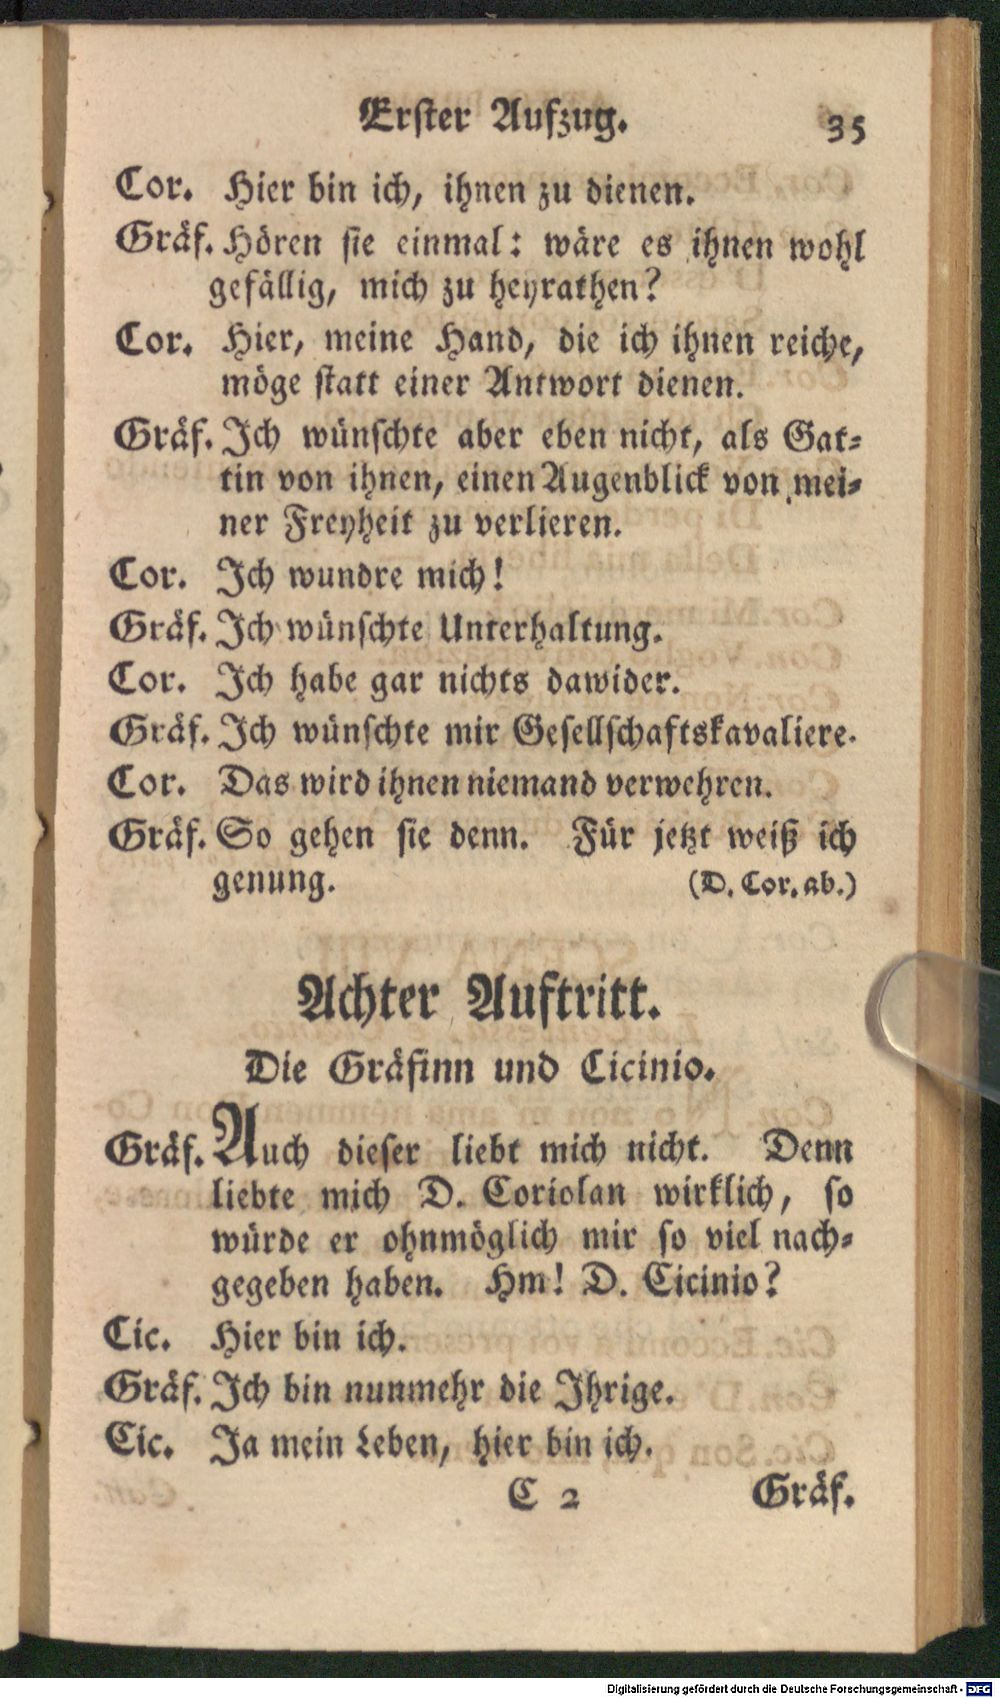 Erſter Aufzug. 35
Cor. Hier bin ich, ihnen zu dienen.
Gräf. Hören ſie einmal: wäre es ihnen wohl
gefällig, mich zu heyrathen?
Cor. Hier, meine Hand, die ich ihnen reiche,
möge ſtatt einer Antwort dienen.
Gräf. Ich wünſchte aber eben nicht, als Gat⸗
tin von ihnen, einen Augenblick von mei⸗
ner Freyheit zu verlieren.
Cor. Ich wundre mich!
Gräf. Ich wünſchte Unterhaltung.
Cor. Ich habe gar nichts dawider.
Gräf. Ich wünſchte mir Geſellſchaftskavaliere.
Cor. Das wird ihnen niemand verwehren.
Gräf. So gehen ſie denn. Für jetzt weiß ich
genung. (D. Cor. ab.)
Achter Auftritt.
Die Gräfinn und Cicinio.
Gräf. Auch dieſer liebt mich nicht. Denn
liebte mich D. Coriolan wirklich, ſo
würde er ohnmöglich mir ſo viel nach⸗
gegeben haben. Hm! D. Cicinio?
Cic. Hier bin ich.
Gräf. Ich bin nunmehr die Ihrige.
Cic. Ja mein Leben, hier bin ich.
C 2 Gräf.
Digitalisierung gefördert durch die Deutsche Forschungsgemeinschaft - DFG